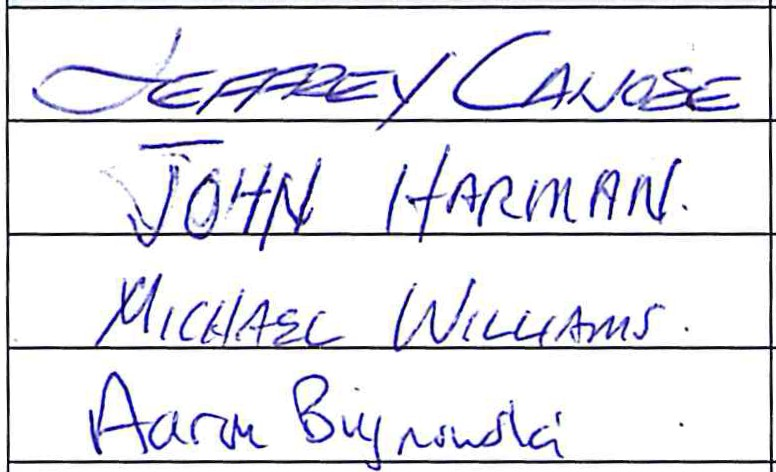 JEFFREY CANOSE
JOHN HARMAN.
MICHAEL WILLIAMS.
Aaron